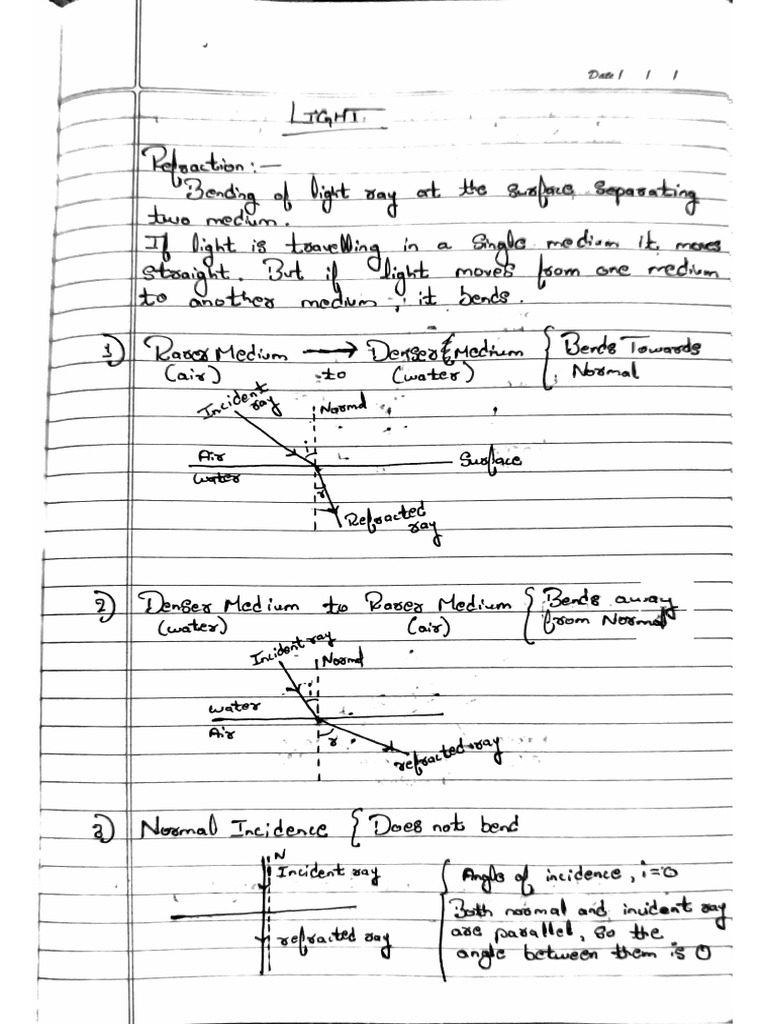 Date / / /
LIGHT
Refraction :—
Bending of light ray at the surface separating
two medium.
If light is travelling in a single medium it moves
straight. But if light moves from one medium
to another medium, it bends.
1) Rarer Medium → Denser Medium { Bends Towards
(air) to (water) Normal
Incident
ray
Normal
i
Air
Surface
Water
r
Refracted
ray
2) Denser Medium to Rarer Medium { Bends away
(water) (air) from Normal
Incident ray
Normal
i
Water
Air
r
refracted ray
3) Normal Incidence { Does not bend
N
Incident ray
refracted ray
{ Angle of incidence, i=0
Both normal and incident ray
are parallel, so the
angle between them is 0